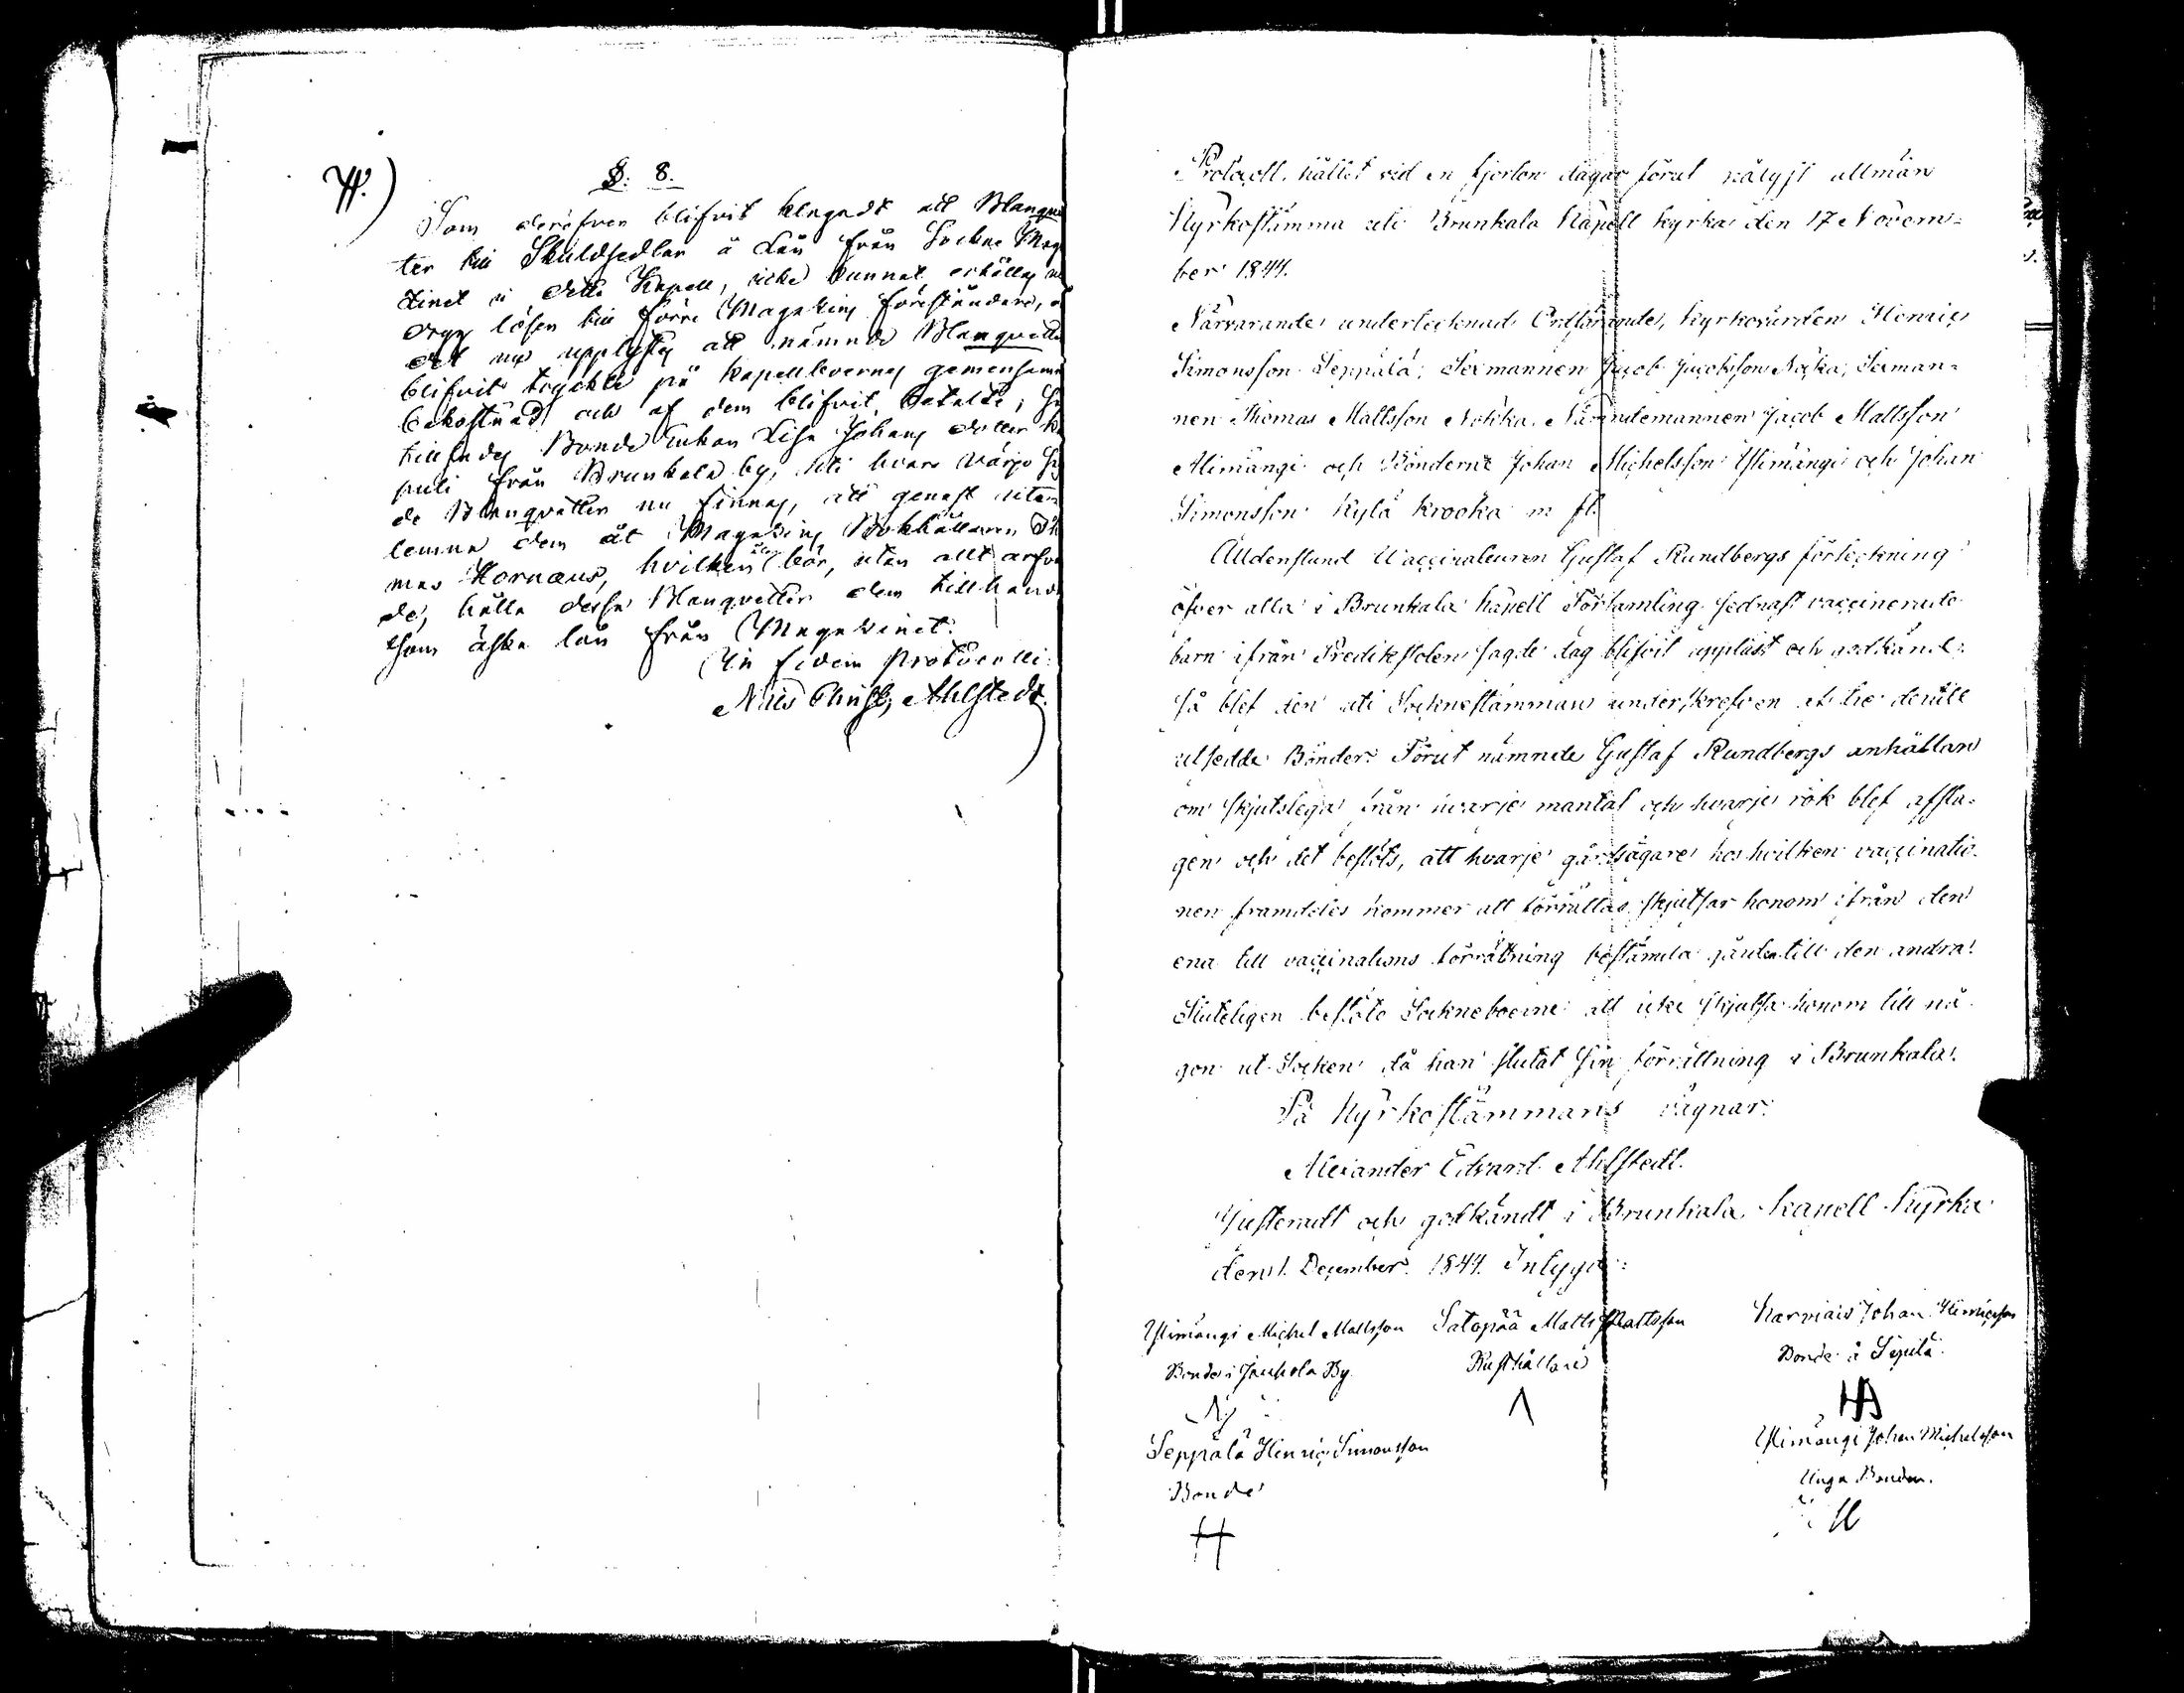 §. 8.
Som deröfver blifvit klagadt att Blanque
ter till Skuldsedlar å Lån från Sockne Mag
zinet i detta Kapell, icke kunnat erhållas
lösen till förre Magazins föreståndare,
det nu upplystes att nämnde Blanquetter
blifvit tryckte på Kapellboernes gemensamma
bekostnad och af dem blifvit betalte;
Bonde Enkan Lisa Johans dotter
puli från Brunkala by, uti hvars värjo
de Blanquetter nu finnas, att genast
lemna dem åt Magazins Bokhållaren
mas Kornæus, hvilken bör, utan allt arfvo
de, hålla dessa Blanquetter dem tillhanda
som äska lån från Magazinet.
In fidem protocolli
Nils Christ. Ahlstedt.
Protocoll, hållet vid en fjorton dagar förut pålyst allmän
Kyrkostämma uti Brunkala Kapell kyrka den 17 Novem-
ber 1844.
Närvarande undertecknad Ordförande, kyrkovärden Henric
Simonsson Seppälä, Sexmannen Jacob Jacobsson Nokka, Sexman-
nen Thomas Mattsson Nokka, Nämndemannen Jacob Mattsson
Alimängi och Bönderne Johan Michelsson Ylimängi och Johan
Simonsson Kylä Krooka m fl.
Alldenstund Vaccinateuren Gustaf Rundbergs förteckning
öfver alla i Brunkala kapell Församling sednast vaccinerade
barn ifrån Predikstolen sagde dag blifvit uppläst och godkänd:
så blef den uti Socknestämman underskrefven af tre dertill
utsedde Bönder. Förut nämnde Gustaf Rundbergs anhållan
om skjutslega från hvarje mantal och hvarje rök blef afsla-
gen och det beslöts, att hvarje gårdsägare hos hvilken vaccinatio-
nen framdeles kommer att förrättas, skjutsar honom ifrån den
ena till vaccinations förrättning bestämda gården till den andra.
Sluteligen beslöto Sockneboerne att icke skjutsa honom till nå-
gon ut Socken då han slutat sin förrättning i Brunkala.
På Kyrkostämmans vägnar:
Alexander Edvard Ahlstedt.
Justeradt och godkändt i Brunkala Kapell Kyrka
den 1. December 1844. Intyga:
Ylimängi Michel Mattsson Satopää Matts Mattsson Johan Henricsson
Bonde i Jauhola By. Rusthållare Bonde å Sipilä.
Seppälä Henric Simonsson Ylimängi Johan Michelsson
Bonde Unga Bonden.